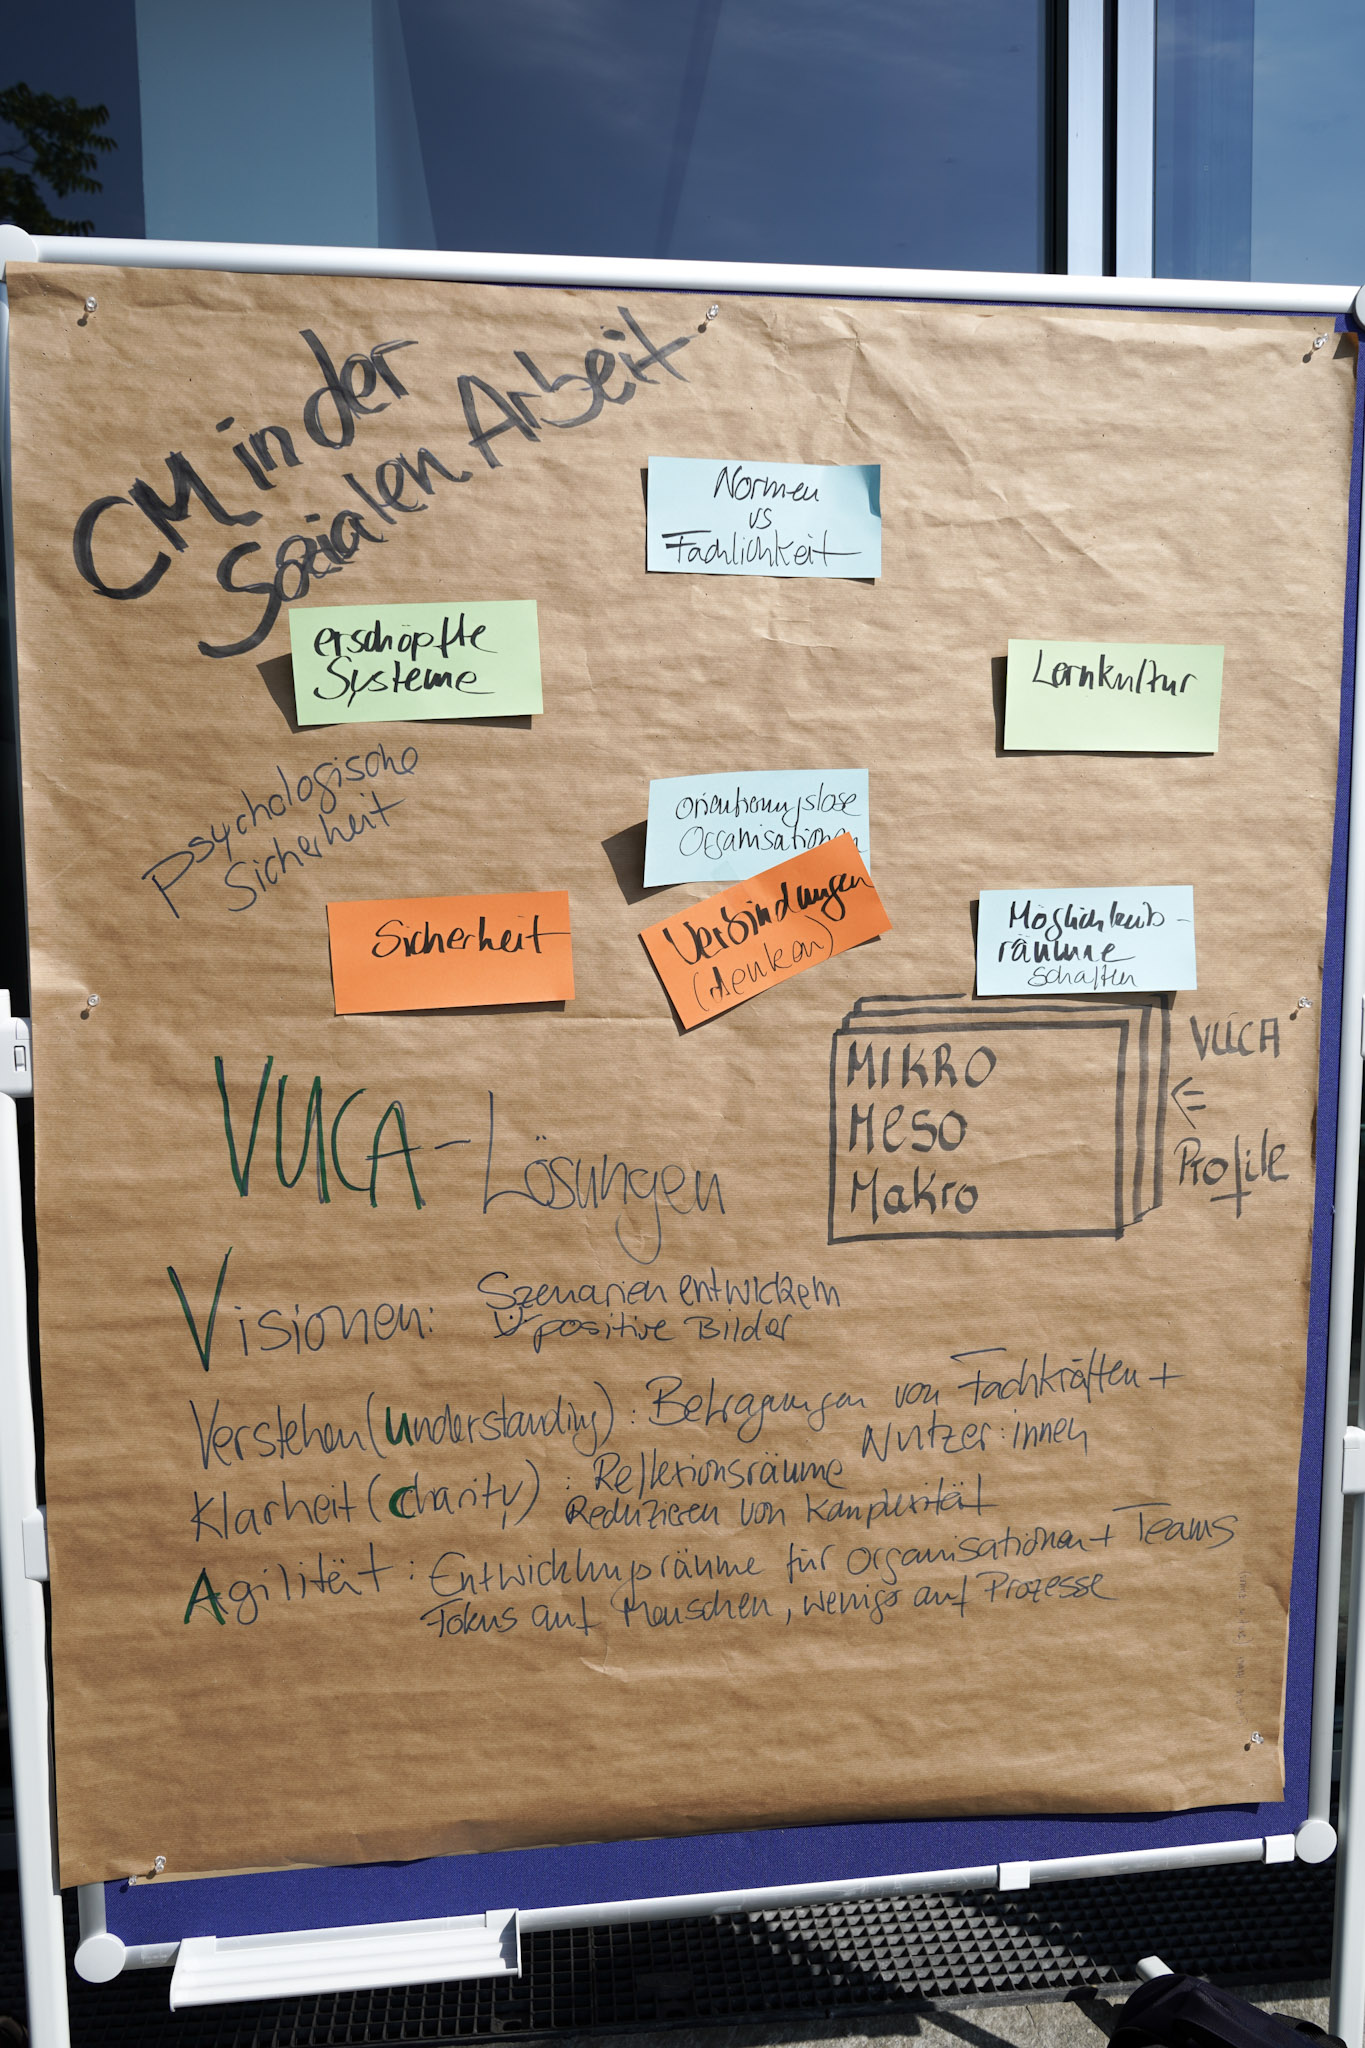 CM in der
Sozialen Arbeit
Normen
vs
Fachlichkeit
erschöpfte
Systeme
Lernkultur
Psychologische
Sicherheit
orientierungslose
Organisationen
Sicherheit
Verbindungen
(denken)
Möglichkeits-
räume
schaffen
MIKRO
MESO
Makro
VUCA
⇐
Profile
VUCA-Lösungen
Visionen: Szenarien entwickeln
positive Bilder
Verstehen (understanding): Befragungen von Fachkräften +
Nutzer:innen
Klarheit (charity): Reflexionsräume
Reduzieren von Komplexität
Agilität: Entwicklungsräume für Organisationen + Teams
Fokus auf Menschen, weniger auf Prozesse